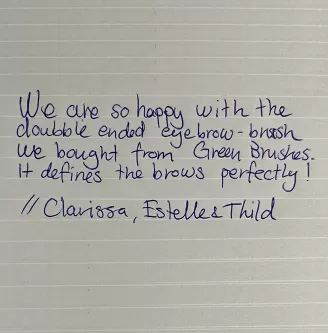 We are so happy with the
doubble ended eyebrow-brush
we bought from Green Brushes.
It defines the brows perfectly!
// Clarissa, Estelle & Thild